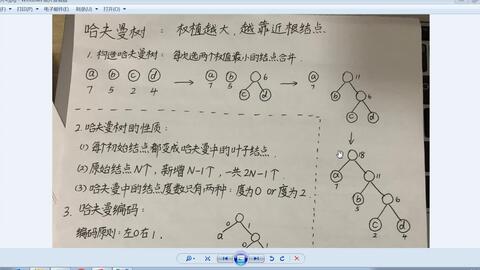 文件(F) 打印(P) 电子邮件(E) 刻录(U) 打开(O)
哈夫曼树 : 权植越大, 越靠近根结点.
1. 构造哈夫曼树: 每次选两个权值最小的结点合并.
a b c d → a b 6 → a 11
7 5 2 4 7 5 c d 7 b 6
c d
2. 哈夫曼树的性质:
(1) 每个初始结点都变成哈夫曼中的叶子结点.
(2) 原始结点N个, 新增N-1个, 一共2N-1个.
(3) 哈夫曼中的结点度数只有两种: 度为0 or 度为2.
18
a 11
7 b 6
5 c d
2 4
3. 哈夫曼编码:
编码原则: 左0右1.
0 1
a 0 1